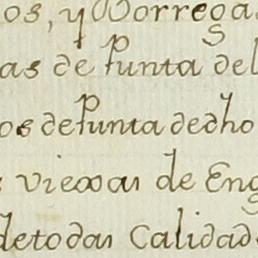 os, y Borregas
as de Punta del
os dePunta dedho
s viexas de Eng
detodas Calidad